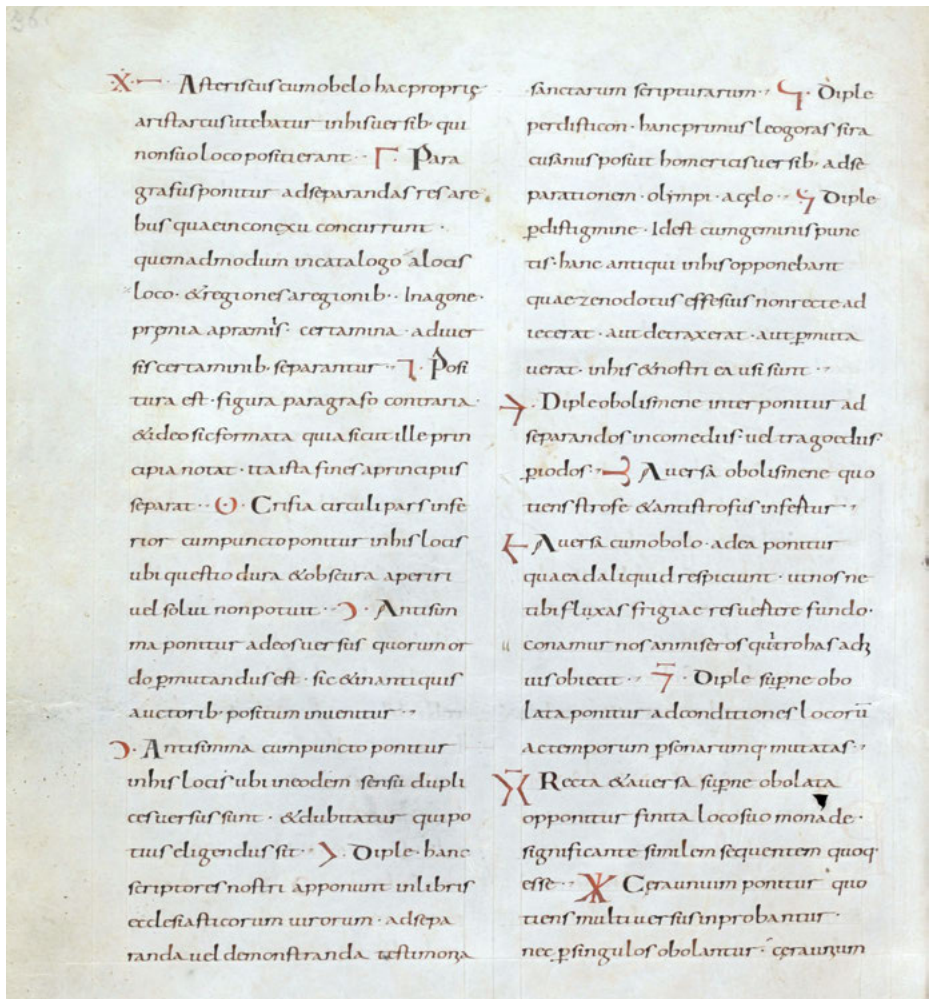 Asteriscus cum obelo hac proprię
aristarcus utebatur in his uersib· qui
non suo loco positi erant · Para
grafus ponitur ad separandas res a re
bus quae in conexu concurrunt ·
quemadmodum in catalogo a locis
loco · & regiones a regionib· · In agone ·
premia a premiis · certamina · a diuer
sis certaminib· separantur · Posi
tura est · figura paragrafo contraria ·
& ideo sic formata quia sicut ille prin
cipia notat · ita ista fines a principiis
separat · Crisia circuli pars infe
rior cum puncto ponitur in his locis
ubi questio dura & obscura aperiri
uel solui non potuit · Antisim
ma ponitur ad eos uersus quorum or
do permutandus est · sic & in antiquis
auctorib· positum inuenitur ·
Antisimma cum puncto ponitur
in his locis ubi in eodem sensu dupli
ces uersus sunt · & dubitatur qui po
tius eligendus sit · Diple · hanc
scriptores nostri apponunt in libris
ecclesiasticorum uirorum · ad sepa
randa uel demonstranda testimonia
sanctarum scripturarum · Diple
peri sticon · hanc primus leogoras sira
cusanus posuit homericis uersib· ad se
parationem · olympi · a cęlo · Diple
p̲distigmine · Id est cum geminis punc
tis · hanc antiqui in his opponebant
quae zenodotus effesius non recte ad
iecerat · aut detraxerat · aut p̲muta
uerat · in his & nostri ea usi sunt ·
Diple obolismene inter ponitur ad
separandos in comediis · uel tragoediis ·
p̲iodos · Auersa obolismene quo
tiens strofe & antistrofus infertur ·
Auersa cum obolo · ad ea ponitur
quae ad aliquid respiciunt · ut nos ne
tibi fluxas frigiae res uertere fundo ·
conamur nos an miseros qui trohas
uis obiecit · Diple sup̲ne obo
lata ponitur ad conditiones locorū
ac temporum p̲sonarumq· mutatas ·
Recta & auersa sup̲ne obolata
opponitur finita loco suo monade ·
significante similem sequentem quoq·
esse · Ceraunium ponitur quo
tiens multi uersus inprobantur ·
nec p̲ singulos obolantur · cęraunium